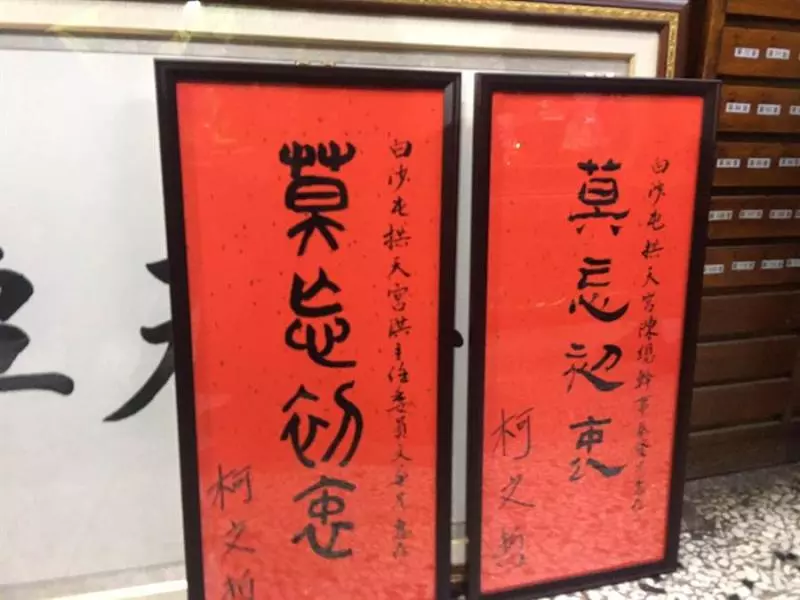 白沙屯拱天宮洪主任委員文華惠存
莫忘初衷
柯文哲
白沙屯拱天宮陳總幹事惠存
莫忘初衷
柯文哲